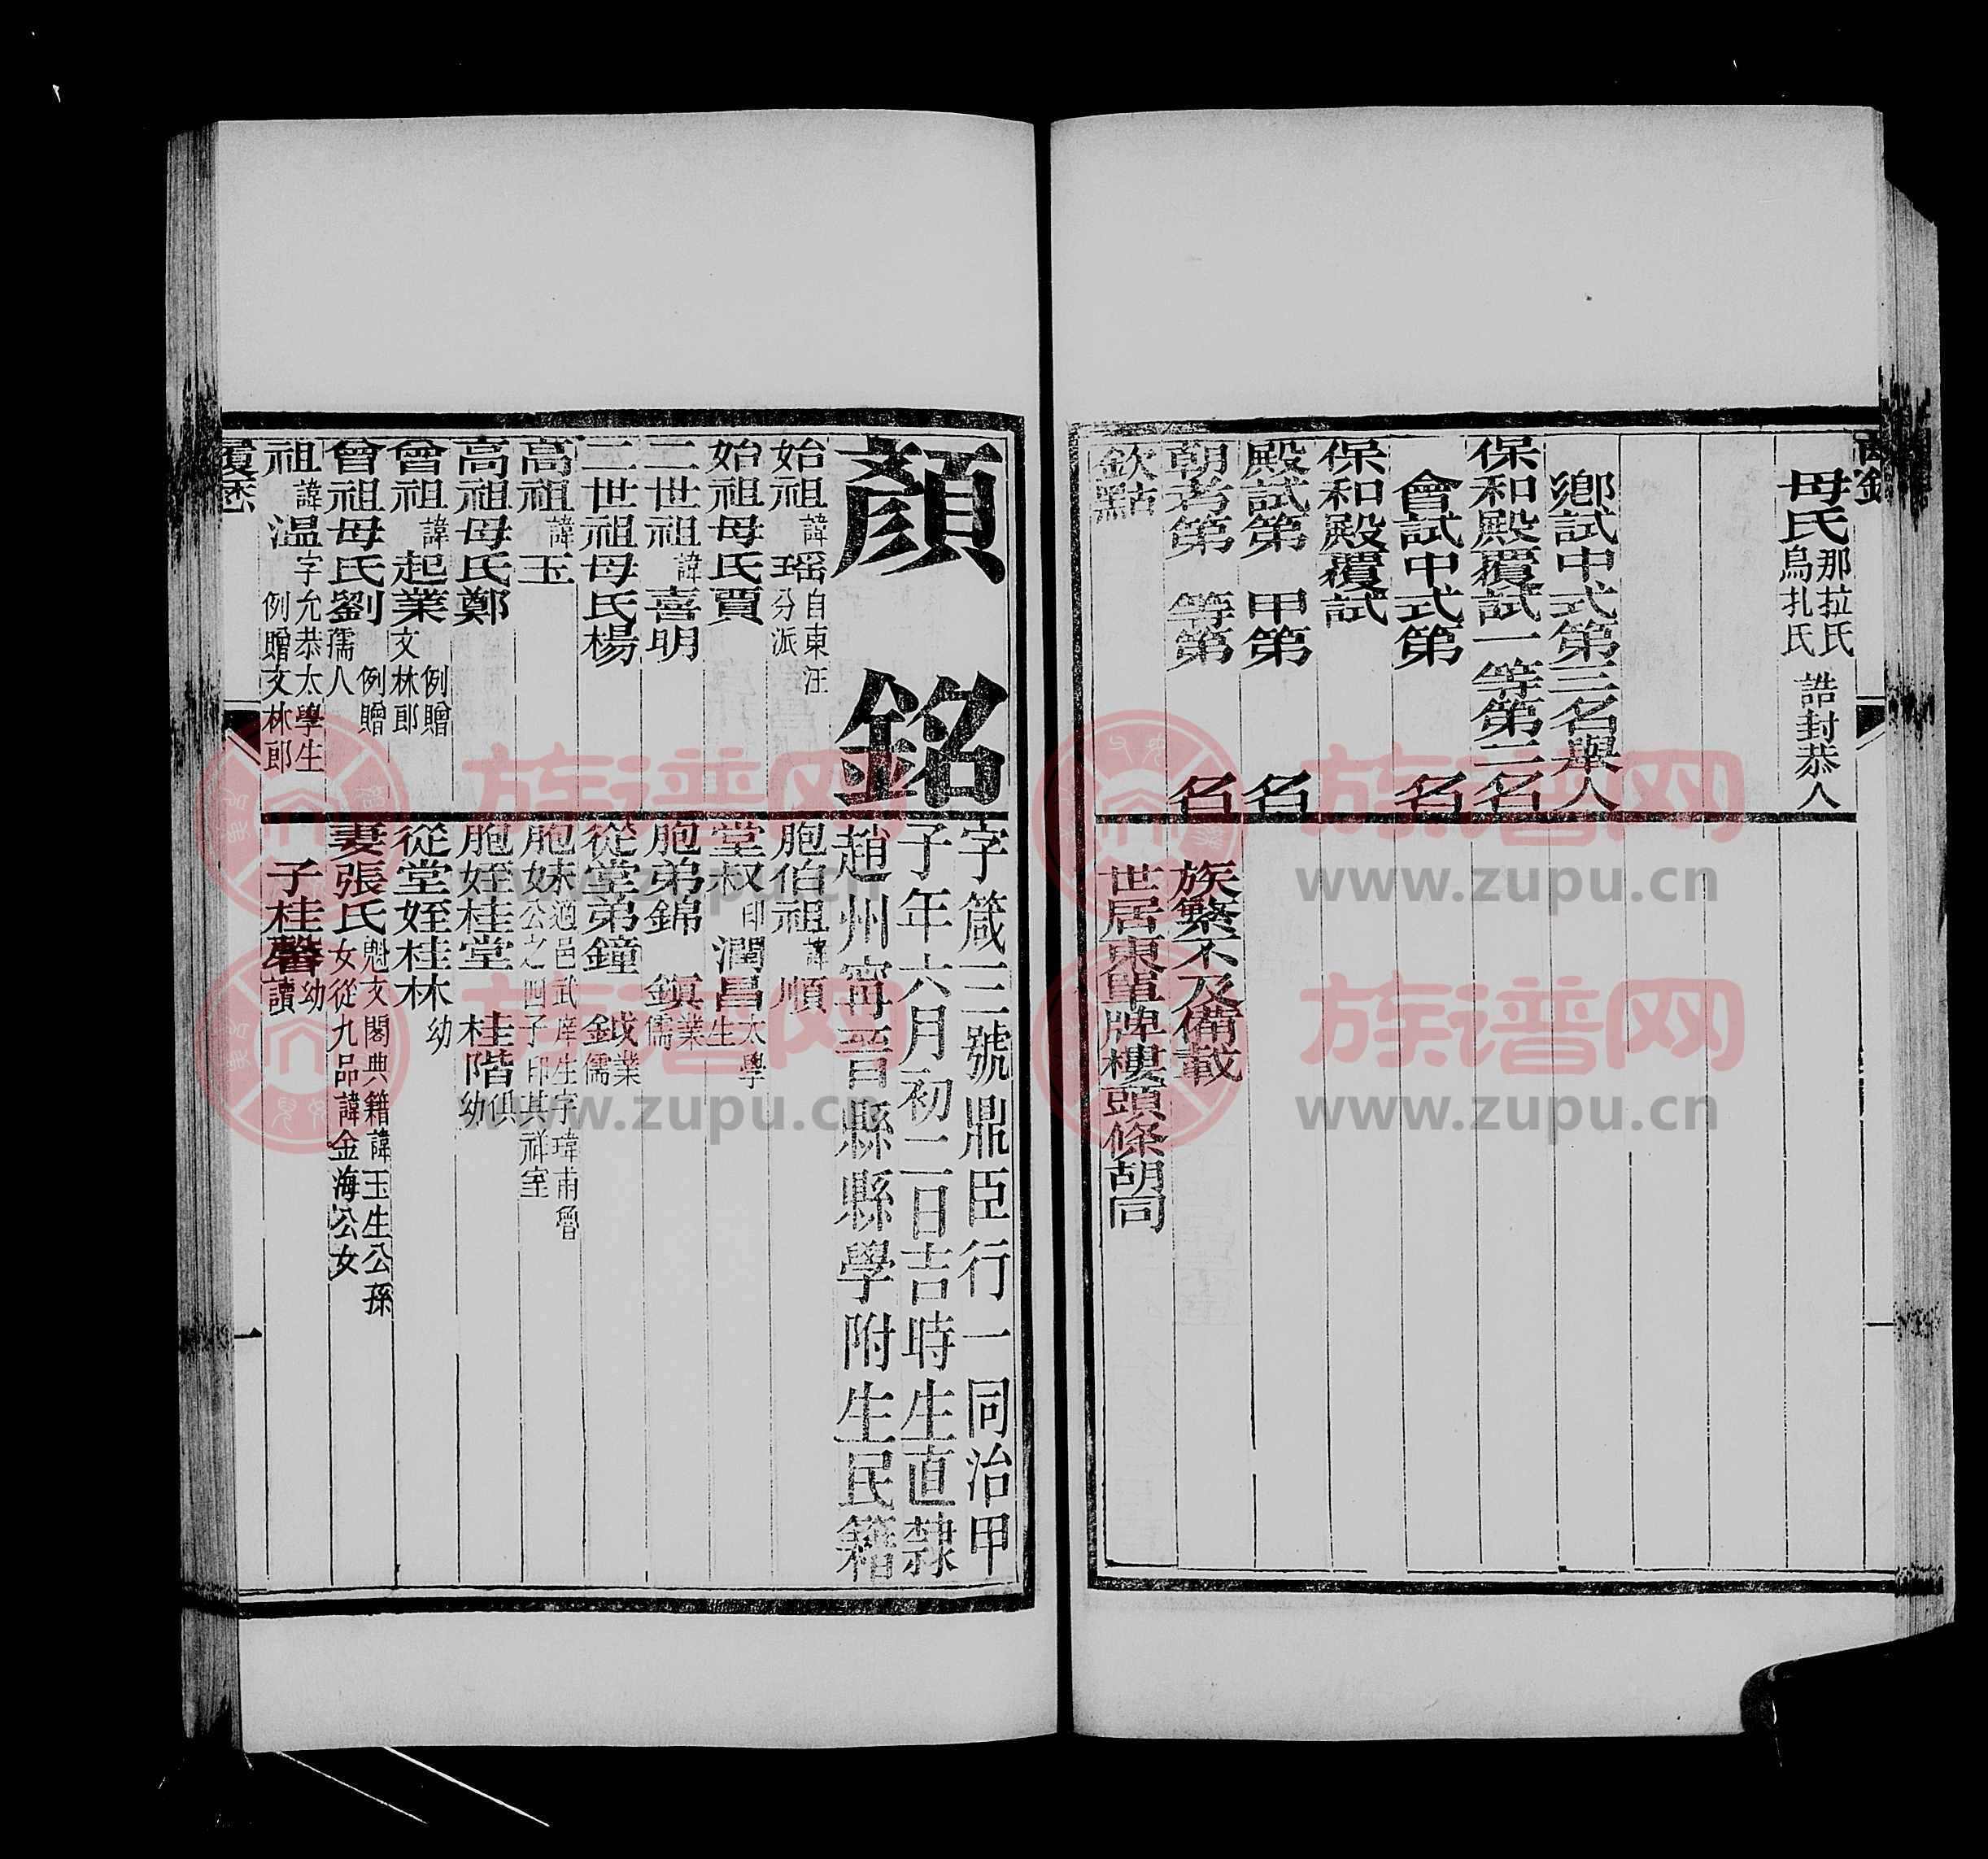 母氏那拉氏烏扎氏 誥封恭人
鄉試中式第三名舉人
保和殿覆試一等第二名
會試中式第 名
保和殿覆試
殿試第 甲第 名
朝考第 等第 名
欽點
族繁不及備載
世居東單牌樓頭條胡同
顏銘
字箴三號鼎臣行一同治甲
子年六月初二日吉時生直隸
趙州寧晉縣縣學附生民籍
始祖諱瑶自東汪分派
始祖母氏賈
二世祖諱喜明
二世祖母氏楊
高祖諱玉
高祖母氏鄭
曾祖諱起業例贈文林郎
曾祖母氏劉例贈孺人
祖諱溫字允恭太學生例贈文林郎
胞伯祖諱順
堂叔印潤昌太學生
胞弟錦 鎮業儒
從堂弟鐘 鉞業儒
胞妹適邑武庠生字瑋甫魯公之四子印其祥室
胞姪桂堂 桂階俱幼
從堂姪桂林幼
妻張氏魁文閣典籍諱玉生公孫女從九品諱金海公女
子桂馨幼讀
履歷
一
族谱网
www.zupu.cn
族谱网
www.zupu.cn
族谱网
www.zupu.cn
族谱网
www.zupu.cn